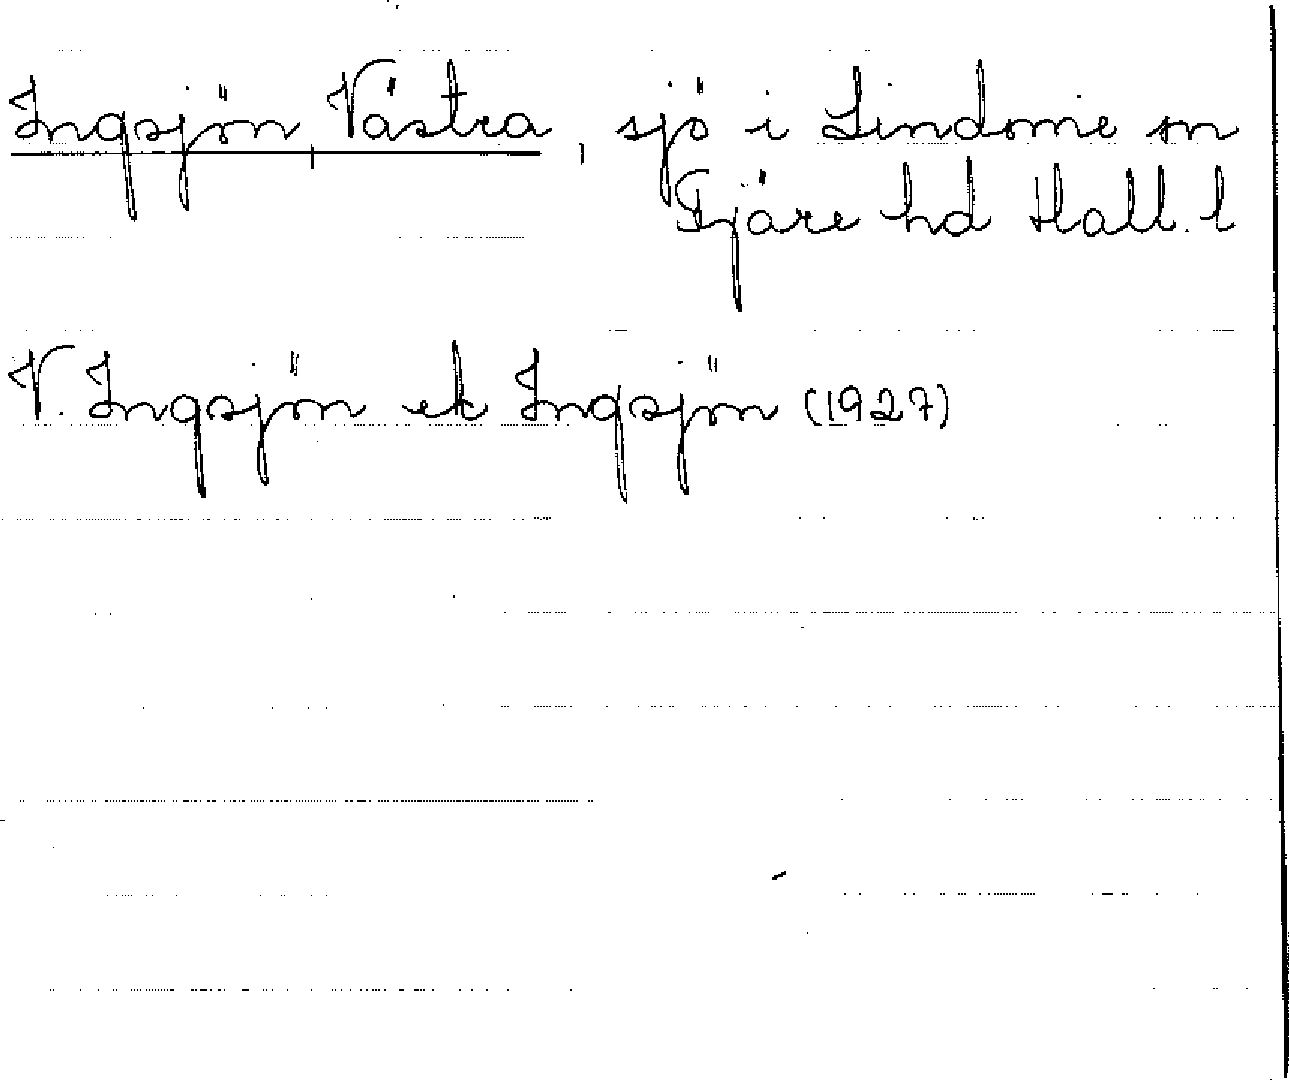 Ingsjön Västra, sjö i Lindome sn
Fjäre hd Hall. l
V. Ingsjön ek Ingsjön (1927)